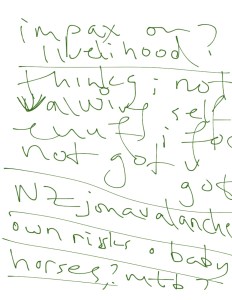 impax on
livelihood?
things; not
valuing self
enuf; if
not got
got
NZ jonavalanche
own risks. baby
horses? mtb?